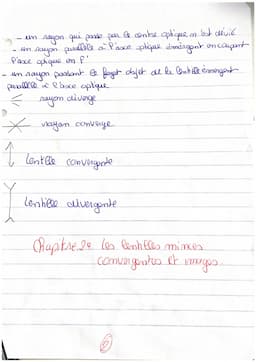 - un rayon qui passe par le centre optique n'est dévié
- un rayon parallèle à l'axe optique émergent en coupant
l'axe optique en F'
- un rayon passant le foyer objet de la lentille émergent
parallèle à l'axe optique
rayon diverge
rayon converge
lentille convergente
lentille divergente
Chapitre 2: les lentilles minces
convergentes et images.